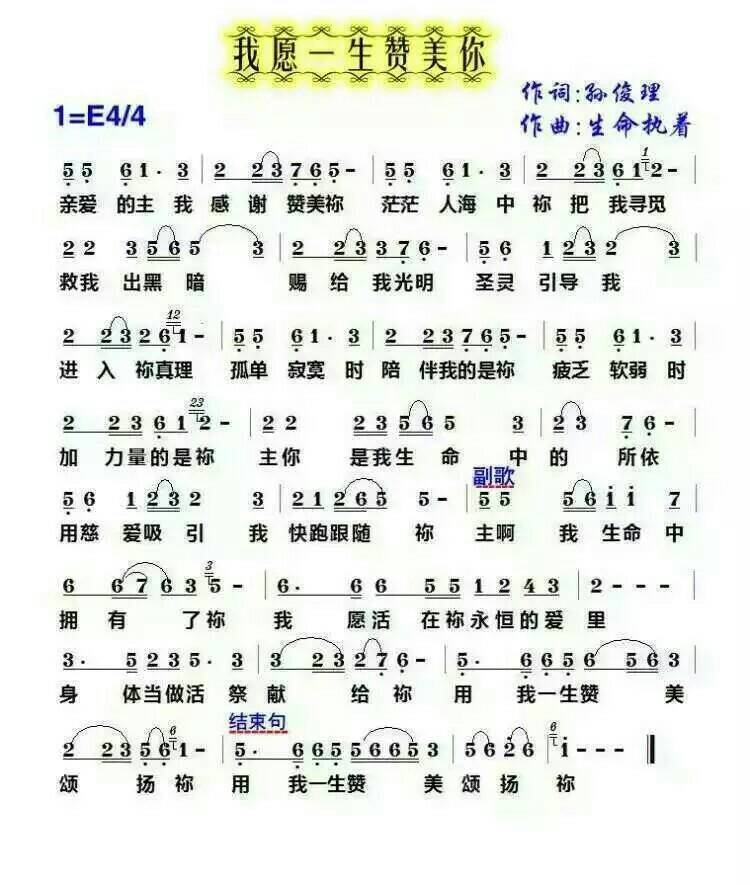 我愿一生赞美你
作词:孙俊理
1=E4/4
作曲:生命执着
5 5 6 1· 3 | 2 2 2 3 7 6 5 - | 5 5 6 1· 3 | 2 2 2 3 6 1 2 - |
亲爱 的主 我 感 谢 赞美祢 茫茫 人海 中 祢 把 我寻觅
2 2 2 3 5 6 5 3 | 2 2 2 3 3 7 6 - | 5 6 1 2 3 2 2 3 |
救我 出黑 暗 赐 给 我光明 圣灵 引导 我
2 2 3 2 6 1 - | 5 5 6 1· 3 | 2 2 2 3 7 6 5 - | 5 5 6 1· 3 |
进 入 祢真理 孤单 寂寞 时 陪 伴我的是祢 疲乏 软弱 时
2 2 3 6 1 2 - | 2 2 2 3 5 6 5 3 | 2 3 7 6 - |
加 力量的是祢 主你 是我生 命 中 的 所依
副歌
5 6 1 2 3 3 | 2 1 2 1 2 6 5 5 - | 5 5 5 6 i i 7 |
用慈 爱吸 引 我 快跑跟随 祢 主啊 我 生命 中
6 6 7 6 3 5 - | 6· 6 6 5 5 1 2 4 3 | 2 - - - |
拥 有 了祢 我 愿活 在祢永恒的爱 里
3· 5 2 3 5· 5 | 3 3 2 3 2 7 6 - | 5· 5 6 1 2 5 6 5 6 3 |
身 体当做活 祭 献 给 祢 用 我一生赞 美
结束句
2 2 2 3 5 6 1 - | 5· 6 6 5 5 6 6 5 3 | 5 6 2 6 i - - ‖
颂 扬 祢 用 我一生赞 美 颂 扬 祢